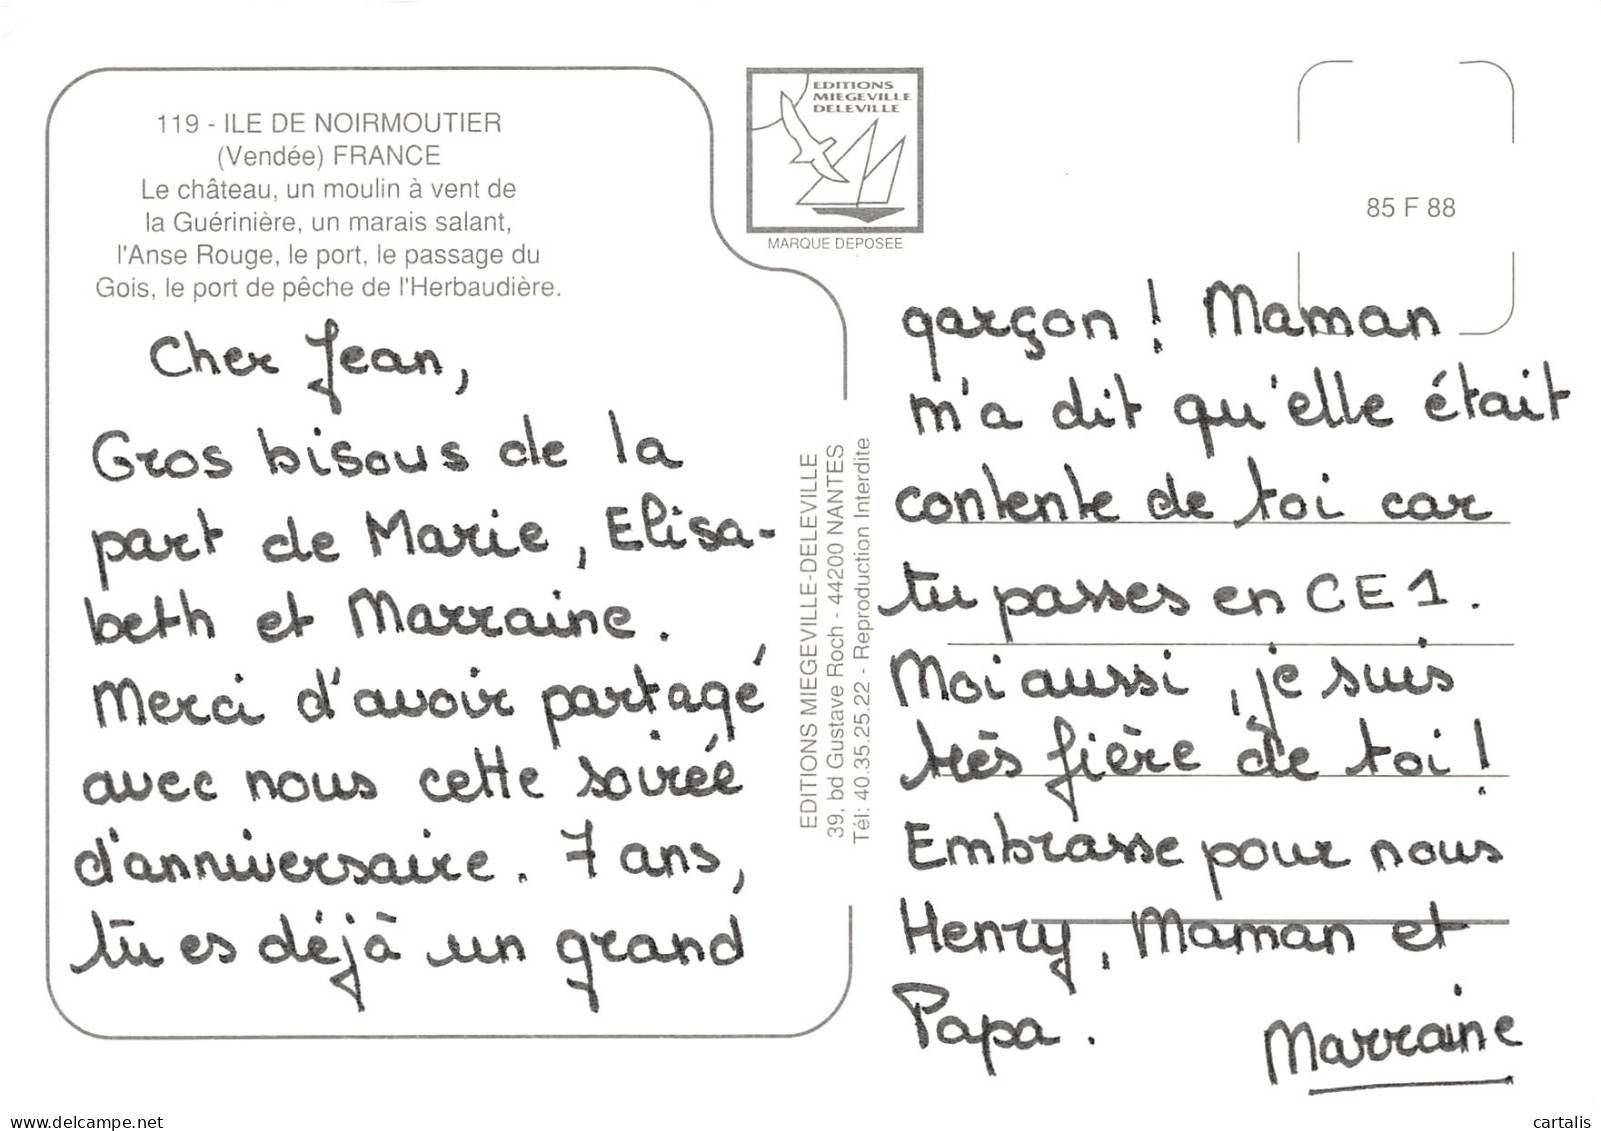 119 - ILE DE NOIRMOUTIER
(Vendée) FRANCE
Le château, un moulin à vent de
la Guérinière, un marais salant,
l'Anse Rouge, le port, le passage du
Gois, le port de pêche de l'Herbaudière.
EDITIONS
MIEGEVILLE
DELEVILLE
MARQUE DEPOSEE
85 F 88
Cher Jean,
Gros bisous de la
part de Marie, Elisa-
beth et Marraine.
Merci d'avoir partagé
avec nous cette soirée
d'anniversaire. 7 ans,
tu es déjà un grand
EDITIONS MIEGEVILLE-DELEVILLE
39, bd Gustave Roch - 44200 NANTES
Tél: 40.35.25.22 - Reproduction Interdite
garçon ! Maman
m'a dit qu'elle était
contente de toi car
tu passes en CE1.
Moi aussi, je suis
très fière de toi !
Embrasse pour nous
Henry, Maman et
Papa.
Marraine
delcampe.net
cartalis